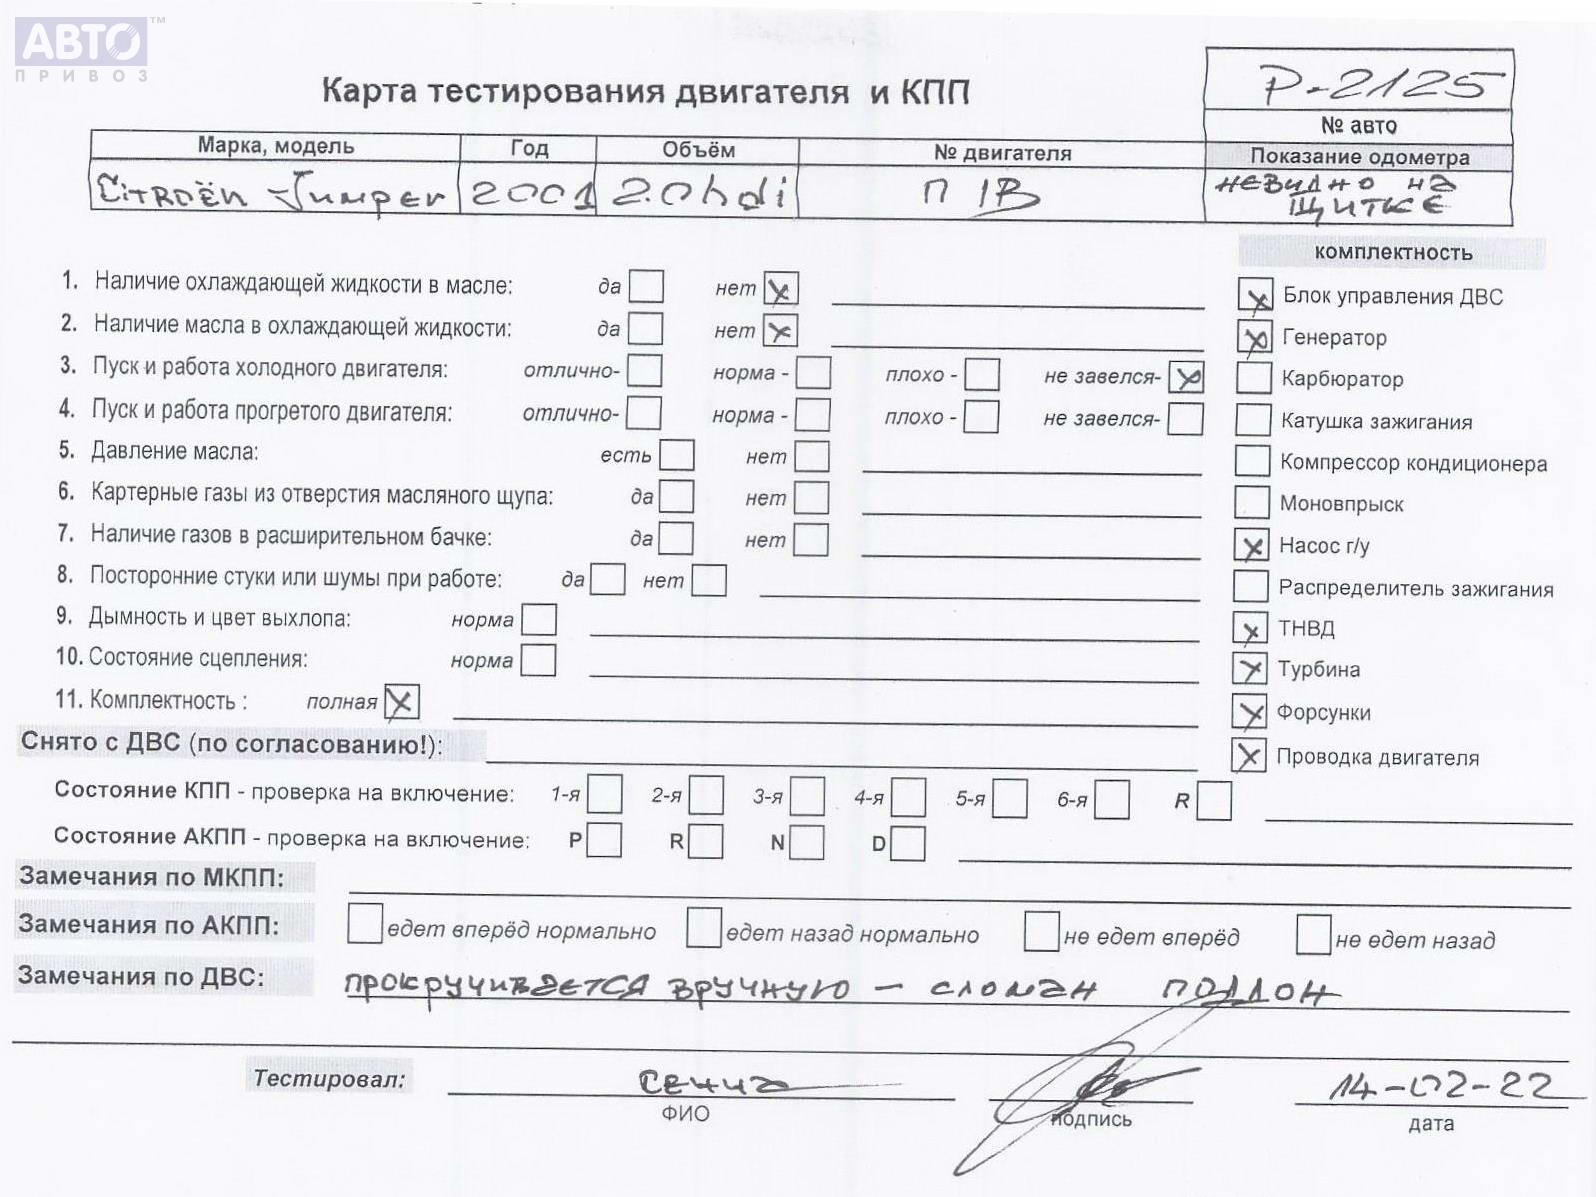 АВТО™
ПРИВОЗ
Карта тестирования двигателя и КПП
P-2125
№ авто
Марка, модель Год Объём № двигателя Показание одометра
Citroën Jumper 2001 2.0hdi П 1В невидно на
щитке
комплектность
1. Наличие охлаждающей жидкости в масле: да нет x
Блок управления ДВС
2. Наличие масла в охлаждающей жидкости: да нет x
Генератор
3. Пуск и работа холодного двигателя: отлично- норма - плохо - не завелся-
Карбюратор
4. Пуск и работа прогретого двигателя: отлично- норма - плохо - не завелся-
Катушка зажигания
5. Давление масла: есть нет
Компрессор кондиционера
6. Картерные газы из отверстия масляного щупа: да нет
Моновпрыск
7. Наличие газов в расширительном бачке: да нет
Насос г/у
8. Посторонние стуки или шумы при работе: да нет
Распределитель зажигания
9. Дымность и цвет выхлопа: норма
ТНВД
10. Состояние сцепления: норма
Турбина
11. Комплектность : полная
Форсунки
Снято с ДВС (по согласованию!):
Проводка двигателя
Состояние КПП - проверка на включение: 1-я 2-я 3-я 4-я 5-я 6-я R
Состояние АКПП - проверка на включение: P R N D
Замечания по МКПП:
Замечания по АКПП: едет вперёд нормально едет назад нормально не едет вперёд не едет назад
Замечания по ДВС: прокручивается вручную – сломан поддон
Тестировал: 14-02-22
ФИО подпись дата